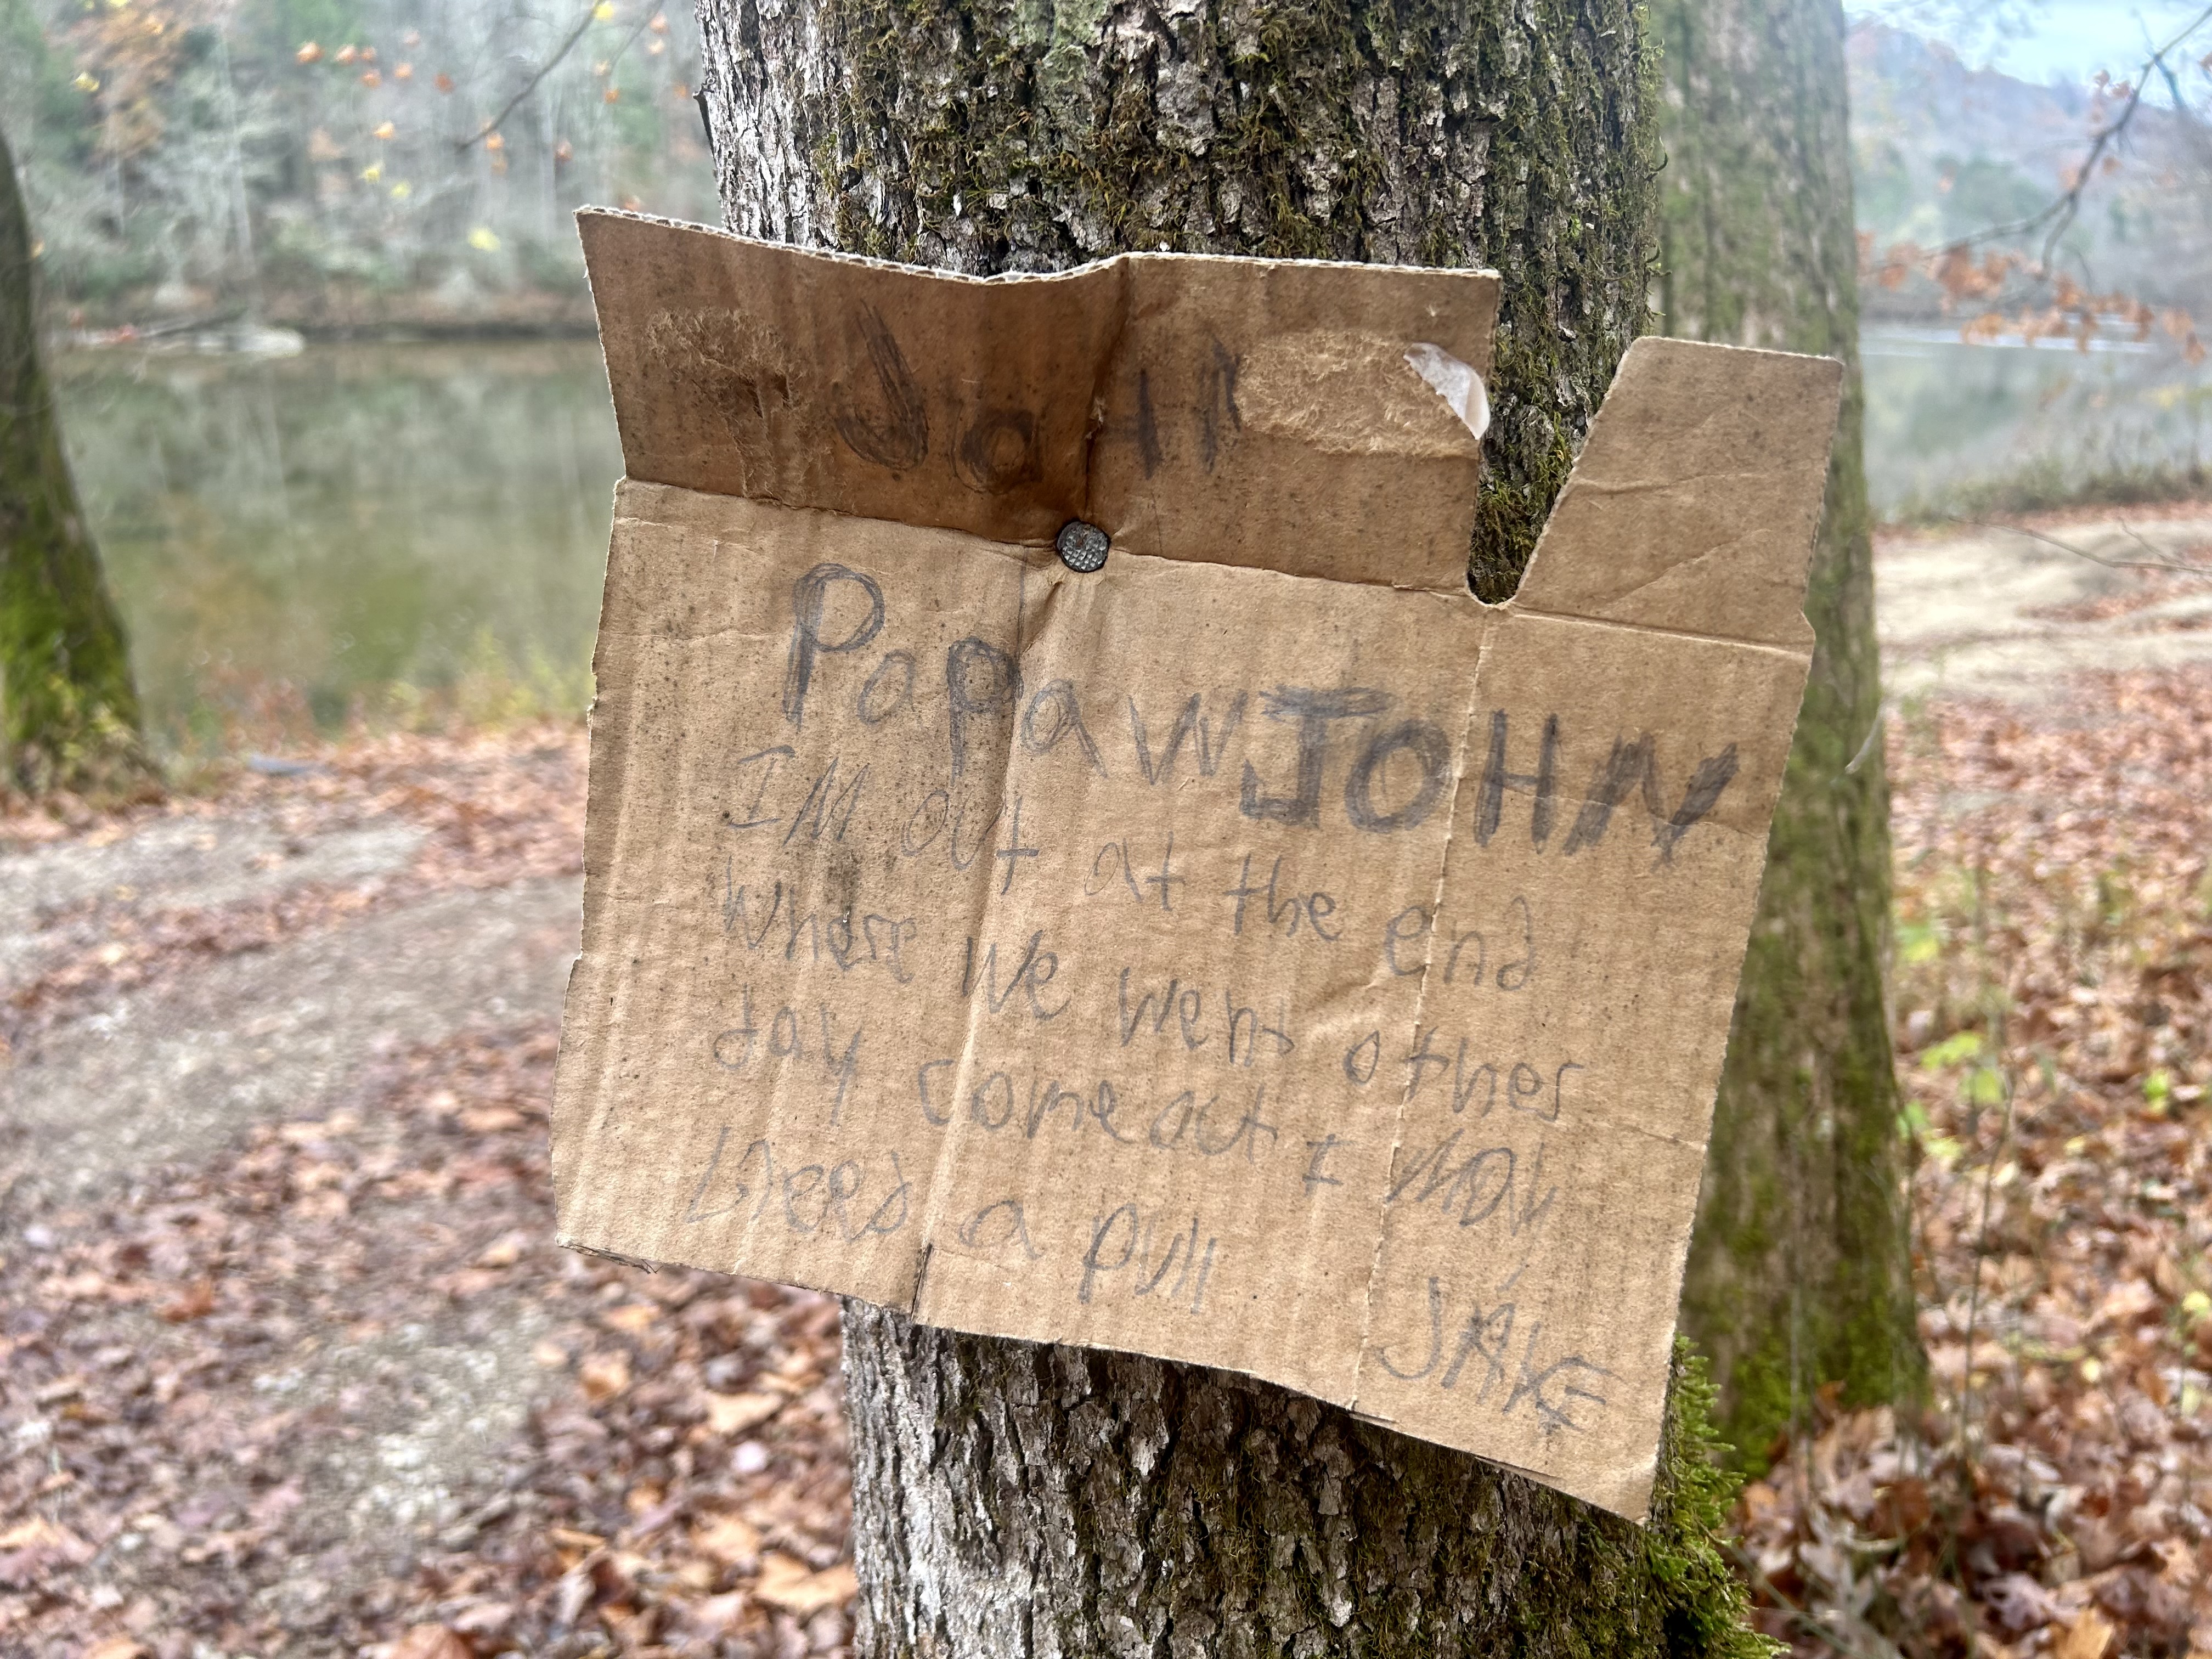 JoHn
Papaw JOHN
I'M out at the end
where we went other
day come out I MaY
Need a pull
JAKE